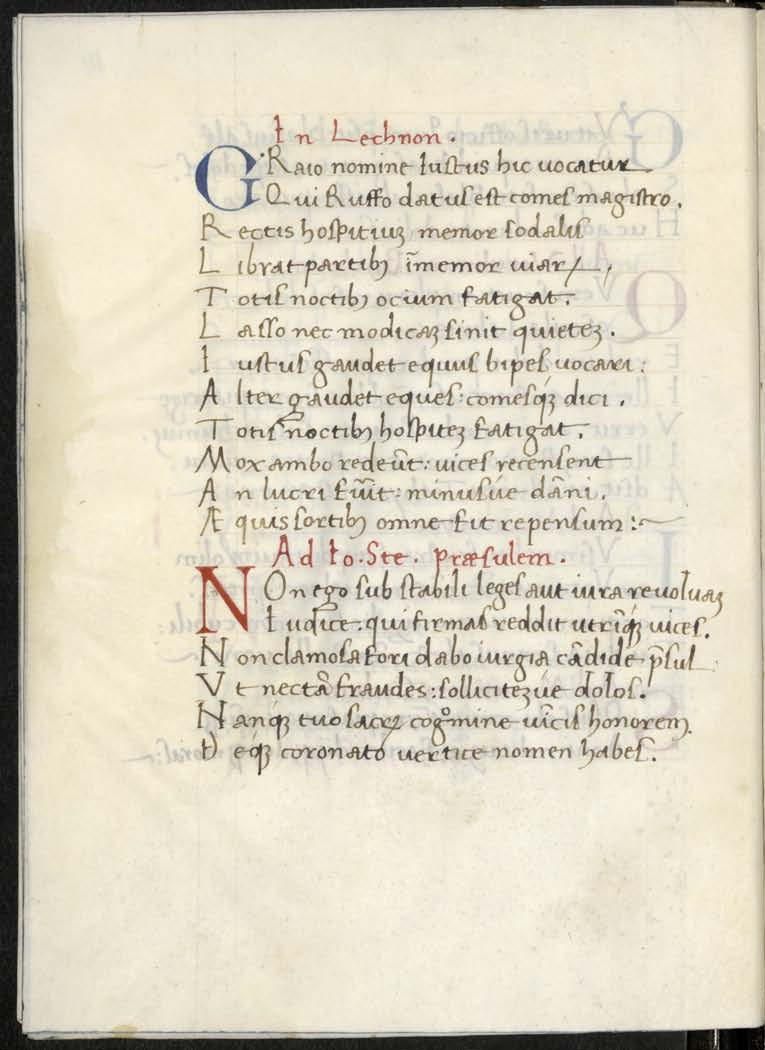 In Lechnon.
GRaio nomine Iustus hic uocatur
Qui Ruffo datus est comes magistro.
Rectis hospitiuꝫ memor sodalis
Librat partibꝫ īmemor uiarꝝ,
Totis noctibꝫ ocium fatigat.
Lasso nec modicaꝫ sinit quieteꝫ.
Iustus gaudet equus bipes uocari:
Alter gaudet eques: comesqꝫ dici.
Totis noctibꝫ hospiteꝫ fatigat.
Mox ambo redeūt: uices recensent
An lucri fūīt: minusúe dāni.
Æquis sortibꝫ omne fit repensum:~
Ad Io. Ste. præsulem.
NOn ego sub stabili leges aut iura reuoluaꝫ
Iudice: qui firmas reddit utrīqꝫ uices.
Non clamosa fori dabo iurgia cādide p̄sul
Vt nectā fraudes: solliciteꝫúe dolos.
Nanqꝫ tuo sacrꝝ cogºmine uīcis honorem.
Deqꝫ coronato uertice nomen habes.